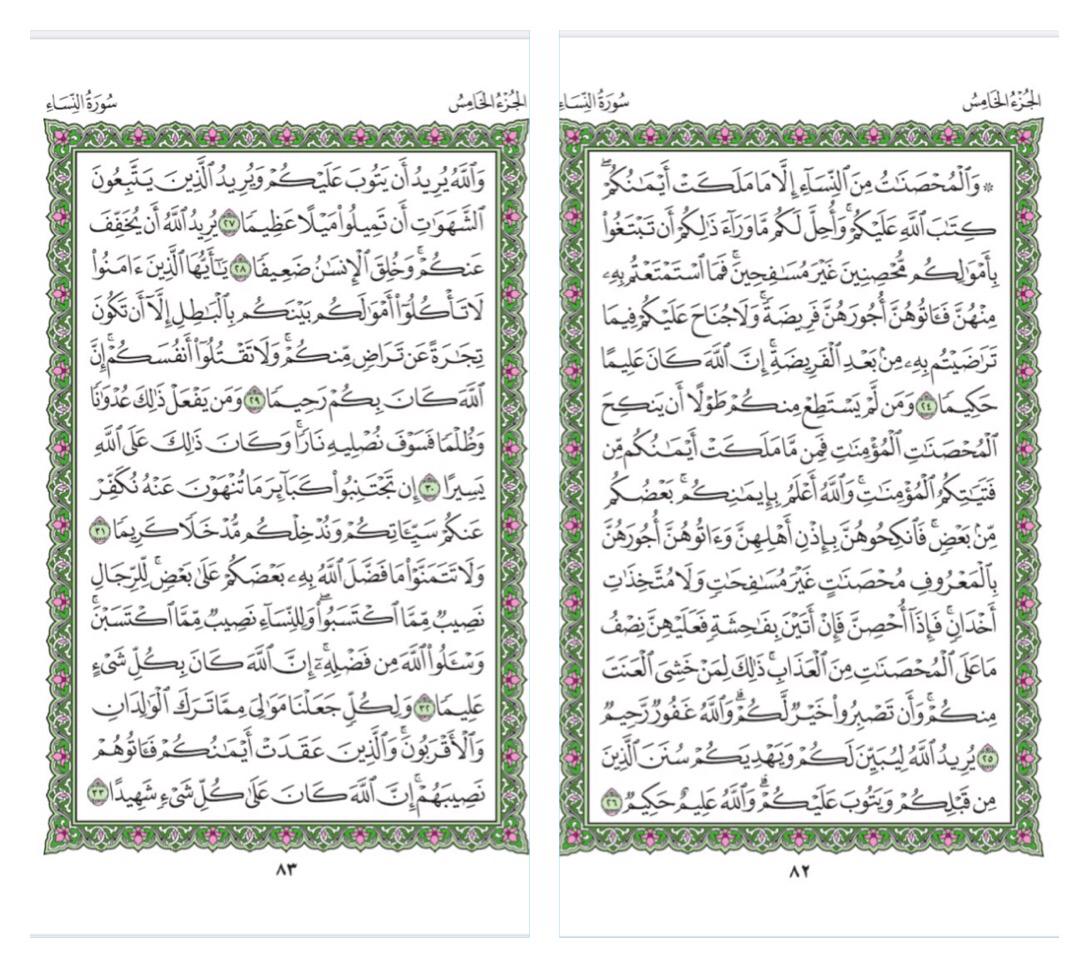 الجُزْءُ الخَامِسُ
سُورَةُ النِّسَاءِ
۞ وَٱلْمُحْصَنَٰتُ مِنَ ٱلنِّسَآءِ إِلَّا مَا مَلَكَتْ أَيْمَٰنُكُمْۖ
كِتَٰبَ ٱللَّهِ عَلَيْكُمْۚ وَأُحِلَّ لَكُم مَّا وَرَآءَ ذَٰلِكُمْ أَن تَبْتَغُوا۟
بِأَمْوَٰلِكُم مُّحْصِنِينَ غَيْرَ مُسَٰفِحِينَۚ فَمَا ٱسْتَمْتَعْتُم بِهِۦ
مِنْهُنَّ فَـَٔاتُوهُنَّ أُجُورَهُنَّ فَرِيضَةًۚ وَلَا جُنَاحَ عَلَيْكُمْ فِيمَا
تَرَٰضَيْتُم بِهِۦ مِنۢ بَعْدِ ٱلْفَرِيضَةِۚ إِنَّ ٱللَّهَ كَانَ عَلِيمًا
حَكِيمًا ٢٤ وَمَن لَّمْ يَسْتَطِعْ مِنكُمْ طَوْلًا أَن يَنكِحَ
ٱلْمُحْصَنَٰتِ ٱلْمُؤْمِنَٰتِ فَمِن مَّا مَلَكَتْ أَيْمَٰنُكُم مِّن
فَتَيَٰتِكُمُ ٱلْمُؤْمِنَٰتِۚ وَٱللَّهُ أَعْلَمُ بِإِيمَٰنِكُمۚ بَعْضُكُم
مِّنۢ بَعْضٍۚ فَٱنكِحُوهُنَّ بِإِذْنِ أَهْلِهِنَّ وَءَاتُوهُنَّ أُجُورَهُنَّ
بِٱلْمَعْرُوفِ مُحْصَنَٰتٍ غَيْرَ مُسَٰفِحَٰتٍ وَلَا مُتَّخِذَٰتِ
أَخْدَانٍۚ فَإِذَآ أُحْصِنَّ فَإِنْ أَتَيْنَ بِفَٰحِشَةٍ فَعَلَيْهِنَّ نِصْفُ
مَا عَلَى ٱلْمُحْصَنَٰتِ مِنَ ٱلْعَذَابِۚ ذَٰلِكَ لِمَنْ خَشِىَ ٱلْعَنَتَ
مِنكُمْۚ وَأَن تَصْبِرُوا۟ خَيْرٌ لَّكُمْۗ وَٱللَّهُ غَفُورٌ رَّحِيمٌ
٢٥ يُرِيدُ ٱللَّهُ لِيُبَيِّنَ لَكُمْ وَيَهْدِيَكُمْ سُنَنَ ٱلَّذِينَ
مِن قَبْلِكُمْ وَيَتُوبَ عَلَيْكُمْۗ وَٱللَّهُ عَلِيمٌ حَكِيمٌ ٢٦
٨٢
الجُزْءُ الخَامِسُ
سُورَةُ النِّسَاءِ
وَٱللَّهُ يُرِيدُ أَن يَتُوبَ عَلَيْكُمْ وَيُرِيدُ ٱلَّذِينَ يَتَّبِعُونَ
ٱلشَّهَوَٰتِ أَن تَمِيلُوا۟ مَيْلًا عَظِيمًا ٢٧ يُرِيدُ ٱللَّهُ أَن يُخَفِّفَ
عَنكُمْۚ وَخُلِقَ ٱلْإِنسَٰنُ ضَعِيفًا ٢٨ يَٰٓأَيُّهَا ٱلَّذِينَ ءَامَنُوا۟
لَا تَأْكُلُوٓا۟ أَمْوَٰلَكُم بَيْنَكُم بِٱلْبَٰطِلِ إِلَّآ أَن تَكُونَ
تِجَٰرَةً عَن تَرَاضٍ مِّنكُمْۚ وَلَا تَقْتُلُوٓا۟ أَنفُسَكُمْۚ إِنَّ
ٱللَّهَ كَانَ بِكُمْ رَحِيمًا ٢٩ وَمَن يَفْعَلْ ذَٰلِكَ عُدْوَٰنًا
وَظُلْمًا فَسَوْفَ نُصْلِيهِ نَارًاۚ وَكَانَ ذَٰلِكَ عَلَى ٱللَّهِ
يَسِيرًا ٣٠ إِن تَجْتَنِبُوا۟ كَبَآئِرَ مَا تُنْهَوْنَ عَنْهُ نُكَفِّرْ
عَنكُمْ سَيِّـَٔاتِكُمْ وَنُدْخِلْكُم مُّدْخَلًا كَرِيمًا ٣١
وَلَا تَتَمَنَّوْا۟ مَا فَضَّلَ ٱللَّهُ بِهِۦ بَعْضَكُمْ عَلَىٰ بَعْضٍۚ لِّلرِّجَالِ
نَصِيبٌ مِّمَّا ٱكْتَسَبُوا۟ۖ وَلِلنِّسَآءِ نَصِيبٌ مِّمَّا ٱكْتَسَبْنَۚ
وَسْـَٔلُوا۟ ٱللَّهَ مِن فَضْلِهِۦٓۗ إِنَّ ٱللَّهَ كَانَ بِكُلِّ شَىْءٍ
عَلِيمًا ٣٢ وَلِكُلٍّ جَعَلْنَا مَوَٰلِىَ مِمَّا تَرَكَ ٱلْوَٰلِدَانِ
وَٱلْأَقْرَبُونَۚ وَٱلَّذِينَ عَقَدَتْ أَيْمَٰنُكُمْ فَـَٔاتُوهُمْ
نَصِيبَهُمْۚ إِنَّ ٱللَّهَ كَانَ عَلَىٰ كُلِّ شَىْءٍ شَهِيدًا ٣٣
٨٣